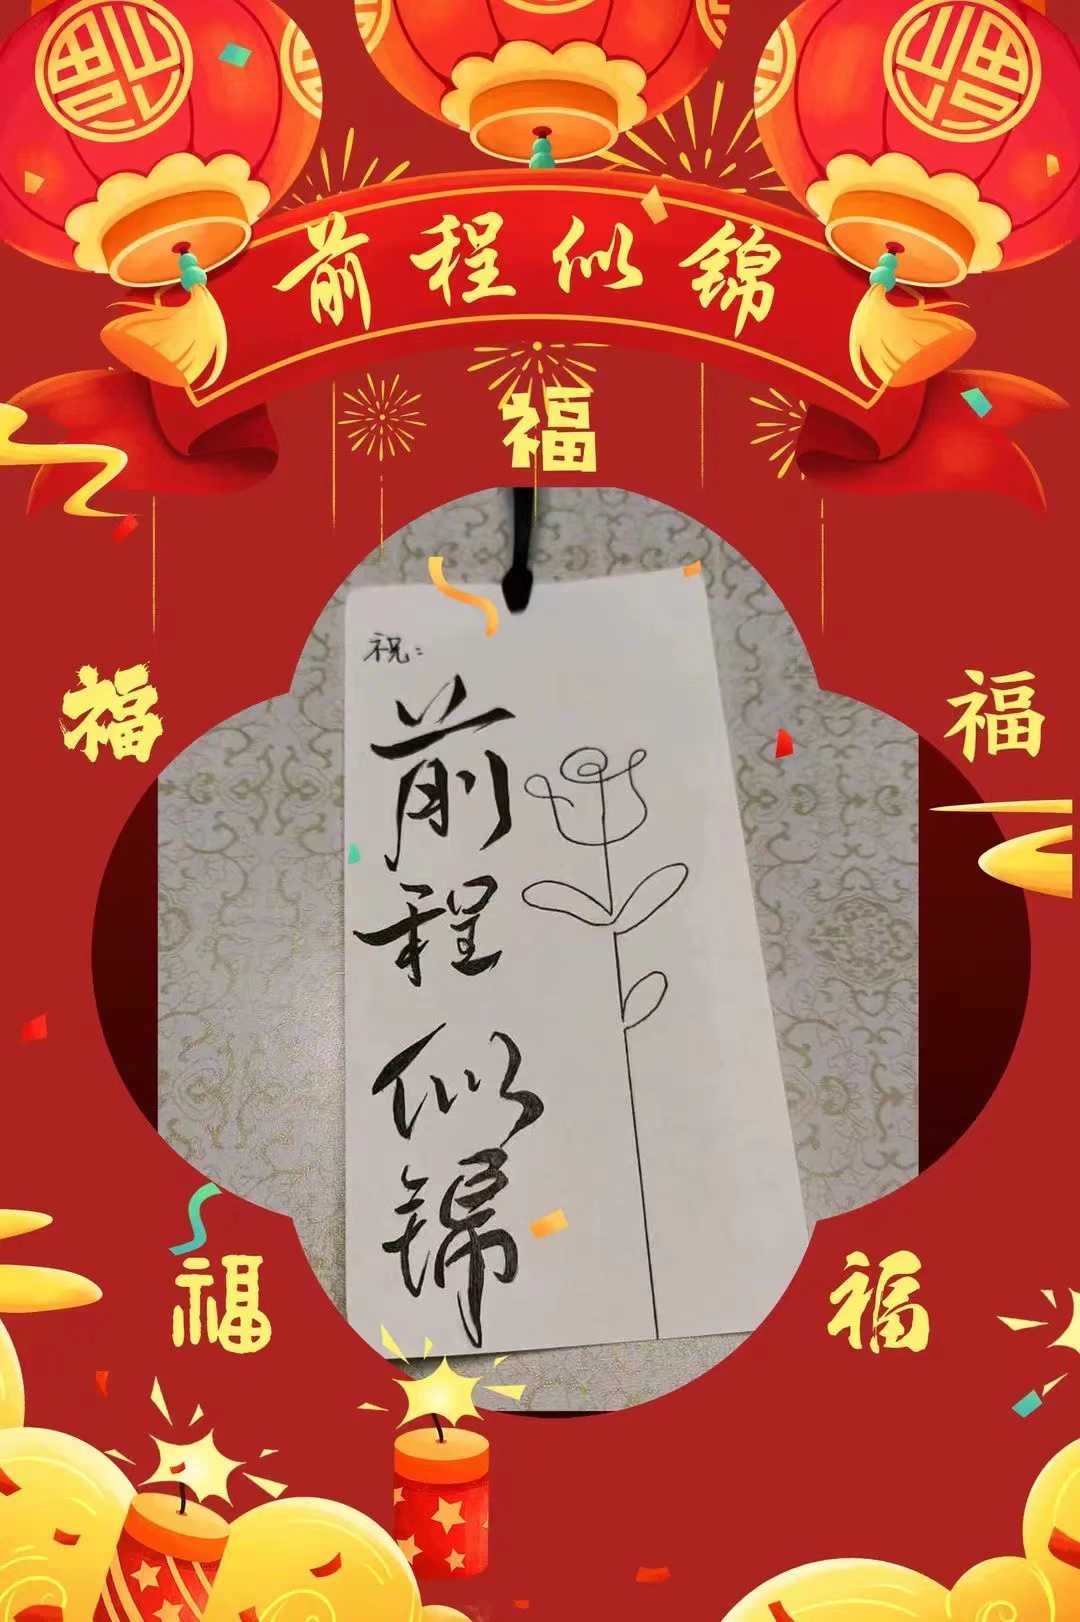 福
福
前程似锦
福
福
福
祝:
前
程
似
锦
福
福